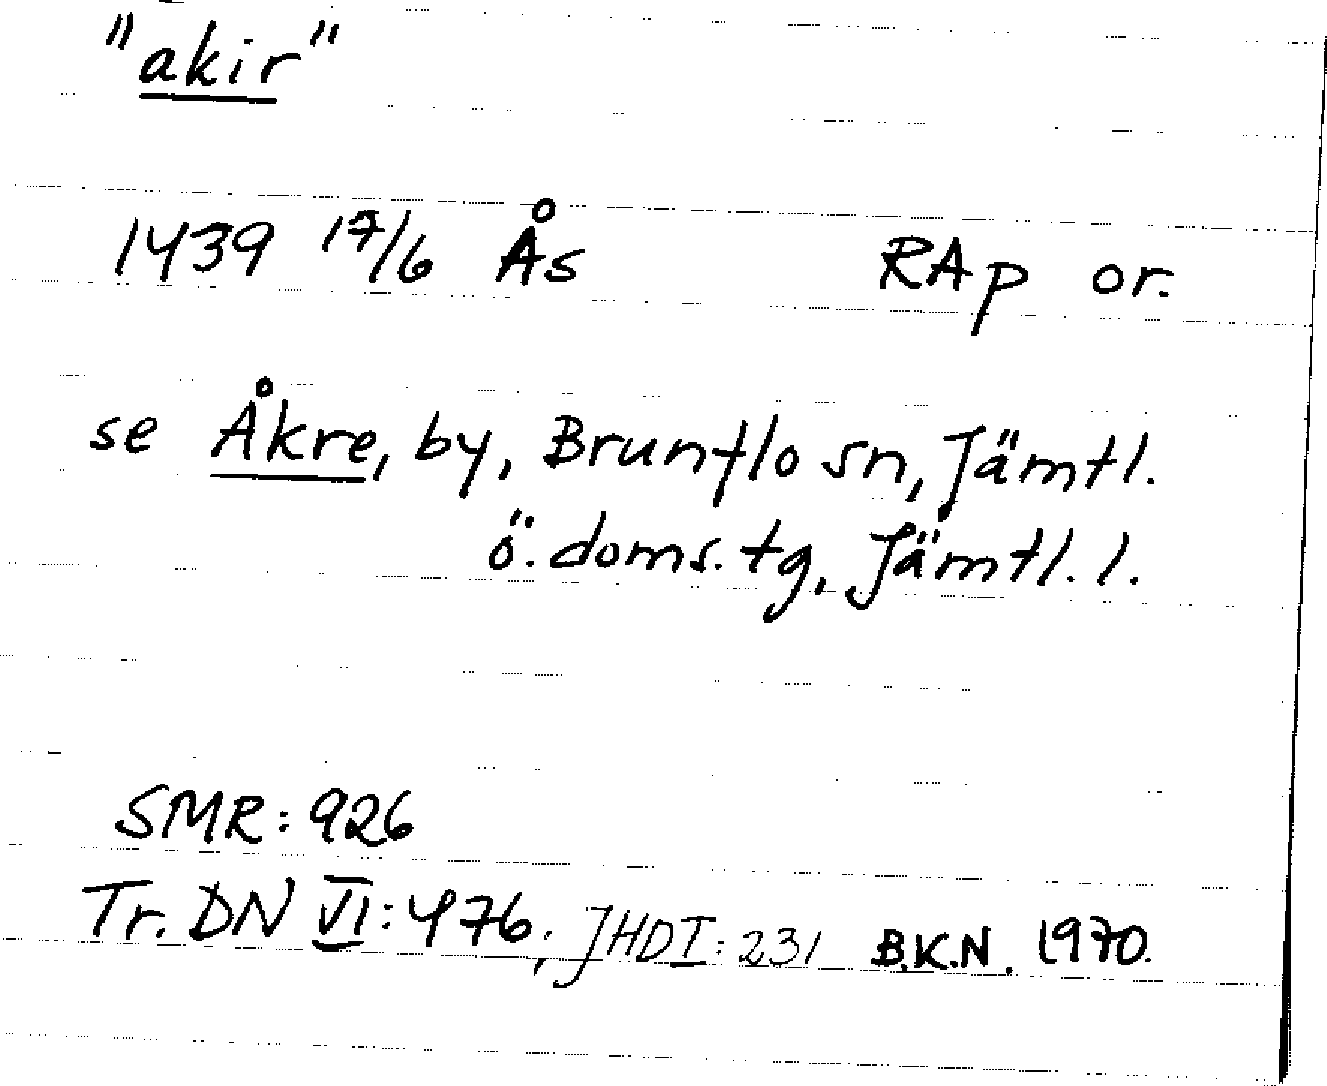 "akir"
1439 17/6 Ås RAp or.
se Åkre, by, Brunflo sn, Jämtl.
ö. doms. tg, Jämtl. l.
SMR: 926
Tr. DN VI: 476; JHD I: 231 B.K.N. 1970.